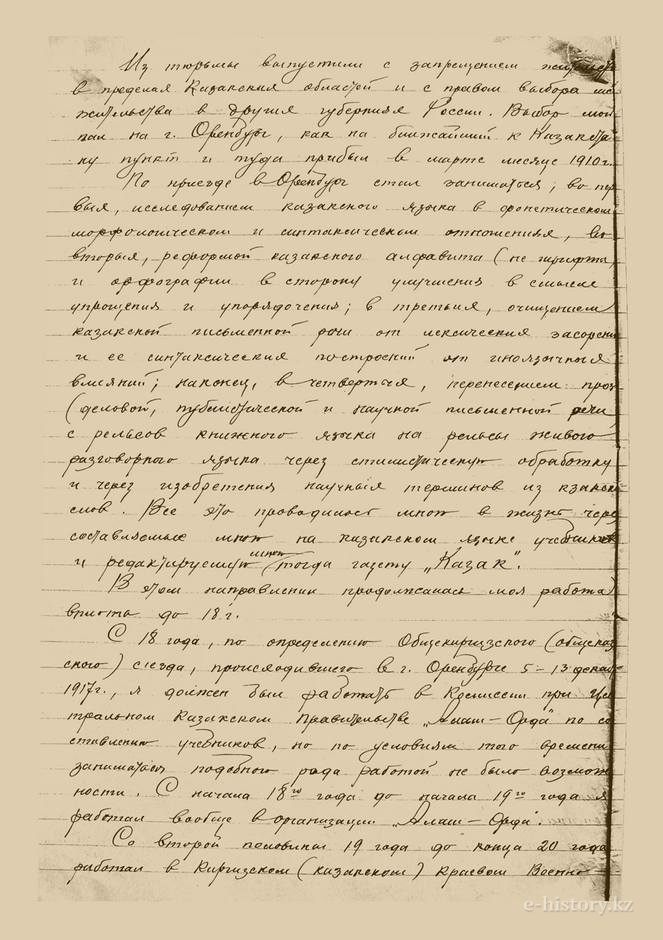 Из тюрьмы выпустили с запрещением жительст
в пределах Казакских областей и с правом выбора мес
жительства в других губерниях России. Выбор мой
пал на г. Оренбург, как на ближайший к Казакста
ну пункт и туда прибыл в марте месяце 1910 г.
По приезде в Оренбург стал заниматься; во пер
вых, исследованием казакского языка в фонетическом
морфологическом и синтаксическом отношениях, во
вторых, реформой казакского алфавита (не шрифта,
и орфографии в сторону улучшения в смысле
упрощения и упорядочения; в третьих, очищением
казакской письменной речи от лексических засорений
и ее синтаксических построений от иноязычных
влияний; наконец, в четвертых, перенесением проз
(деловой, публистической и научной письменной речи
с рельсов книжного языка на рельсы живого
разговорного языка через стилистическую обработку
и через изобретения научных терминов из казакск
слов. Все это проводилось мною в жизнь через
составляемые мною на казакском языке учебники
и редактируемую мною тогда газету „Казак“.
В этом направлении продолжалась моя работа
вплоть до 18 г.
С 18 года, по определению Общекиргизского (общеказ
ского) съезда, происходившего в г. Оренбурге 5–13 декаб
1917 г., я должен был работать в Комиссии при Цен
тральном Казакском правительстве „Алаш-Орда“ по со
ставлению учебников, но по условиям того времени
заниматься подобного рода работой не было возмож
ности. С начала 18го года до начала 19го года я
работал вообще в организации „Алаш-Орда“.
Со второй половины 19 года до конца 20 года
работал в Киргизском (казакском) краевом Военно-
e-history.kz